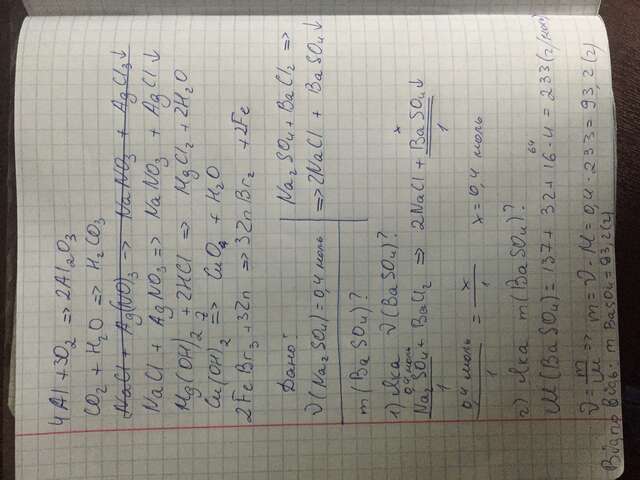 4Al + 3O₂ => 2Al₂O₃
CO₂ + H₂O => H₂CO₃
NaCl + Ag(NO)₃ → NaNO₃ + AgCl₃↓
NaCl + AgNO₃ => NaNO₃ + AgCl↓
Mg(OH)₂ + 2HCl => MgCl₂ + 2H₂O
Cu(OH)₂ => CuO + H₂O
2FeBr₃ + 3Zn => 3ZnBr₂ + 2Fe
Дано:
ν(Na₂SO₄) = 0,4 моль
m(BaSO₄)?
Na₂SO₄ + BaCl₂ =>
=> 2NaCl + BaSO₄↓
1) Яка ν(BaSO₄)?
0,4 моль x
Na₂SO₄ + BaCl₂ => 2NaCl + BaSO₄↓
1 1
0,4 моль / 1 = x / 1 x = 0,4 моль
2) Яка m(BaSO₄)?
64
M(BaSO₄) = 137 + 32 + 16·4 = 233 (г/моль)
ν = m/M => m = ν · M = 0,4 · 233 = 93,2 (г)
Відповідь: m BaSO₄ = 93,2 (г)